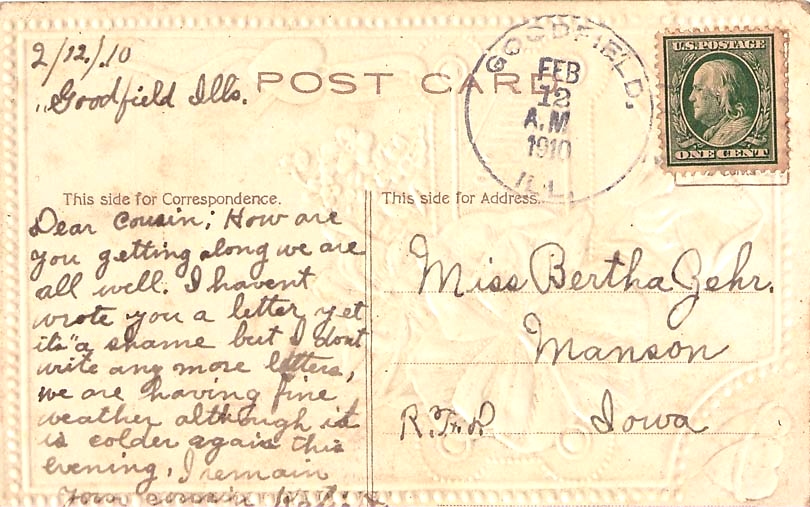 2/12/10
Goodfield Ills.
POST CARD
GOODFIELD,
FEB
12
A.M
1910
ILL.
U.S. POSTAGE
ONE CENT
This side for Correspondence.
Dear Cousin; How are
you getting along we are
all well. I havent
wrote you a letter yet
its "a shame but I dont
write any more letters,
we are having fine
weather although it
is colder again this
evening, I remain
your cousin
This side for Address.
Miss Bertha Gehr.
Manson
Iowa
R.F.D.